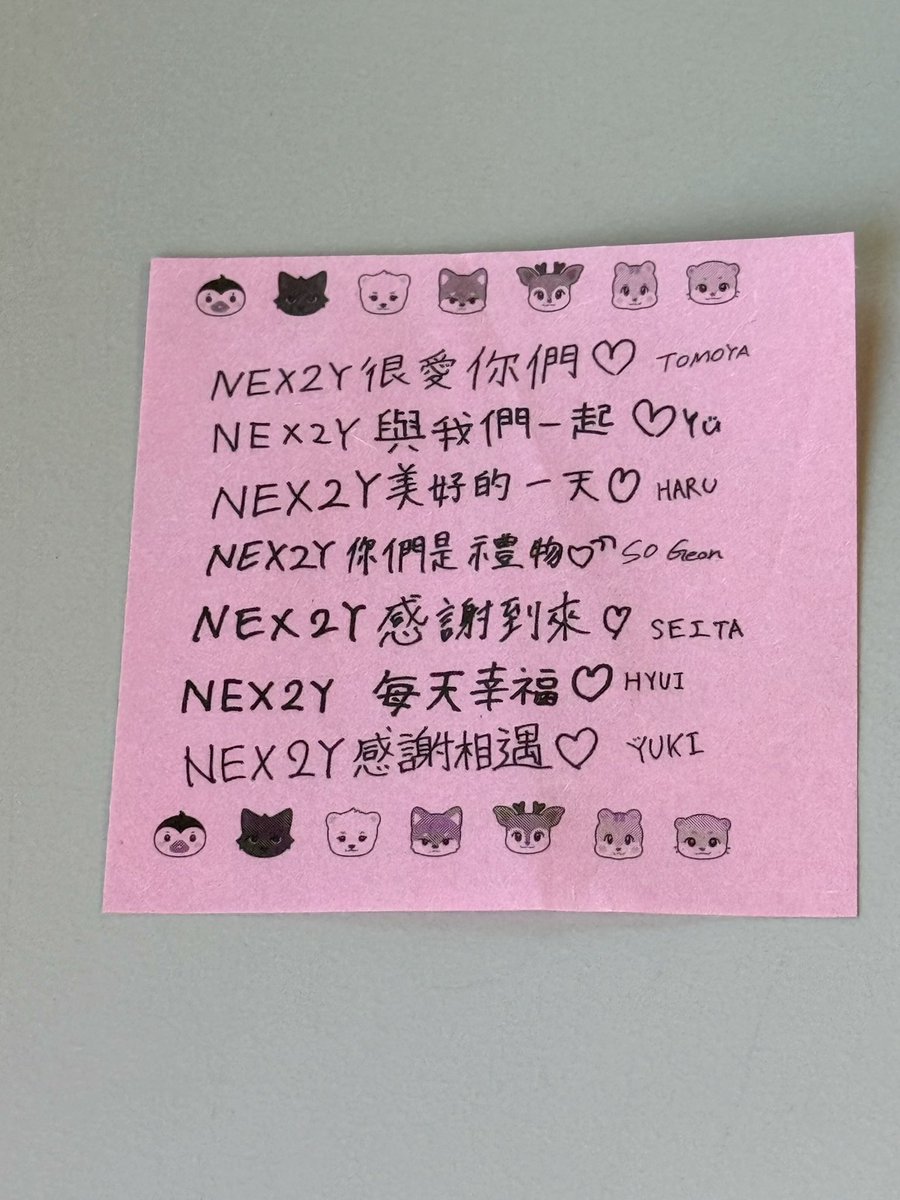 NEX2Y很愛你們♡ TOMOYA
NEX2Y 與我們一起 ♡Yü
NEX2Y美好的一天♡ HARU
NEX2Y 你們是禮物♡ SO Geon
NEX2Y 感謝到來♡ SEITA
NEX2Y 每天幸福♡ HYUI
NEX2Y感謝相遇♡ YUKI